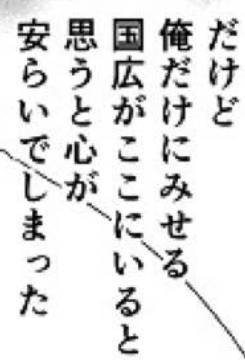 だけど
俺だけにみせる
国広がここにいると
思うと心が
安らいでしまった